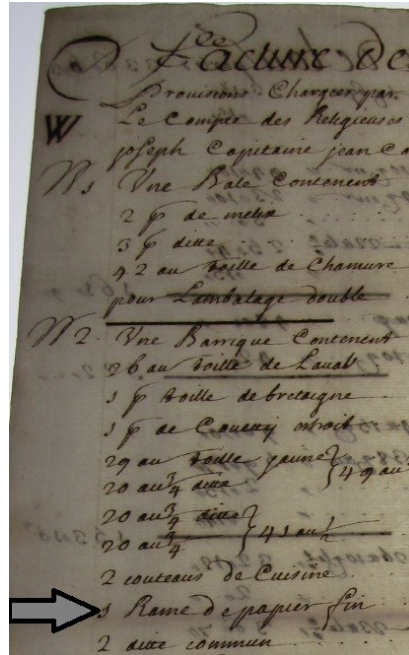 Facture de
Provisions Chargees par
Le Compte des Religieuses
W
joseph Capitaine jean
N 1 Vne Bale Contenent
2 p de melix
3 p ditte
42 au toille de Chanure
pour Lambalage double
N 2. Vne Barrique Contenent
26 au toille de Lauall
1 p toille de bretaigne
1 p de Couetty etroit
29 au toille jaune
20 au 3/4 ditte } 49 au
20 au 3/4 ditte
20 au 3/4 } 41 au 1/2
2 couteaus de Cuisine
1 Rame de papier fin
2 ditte commun